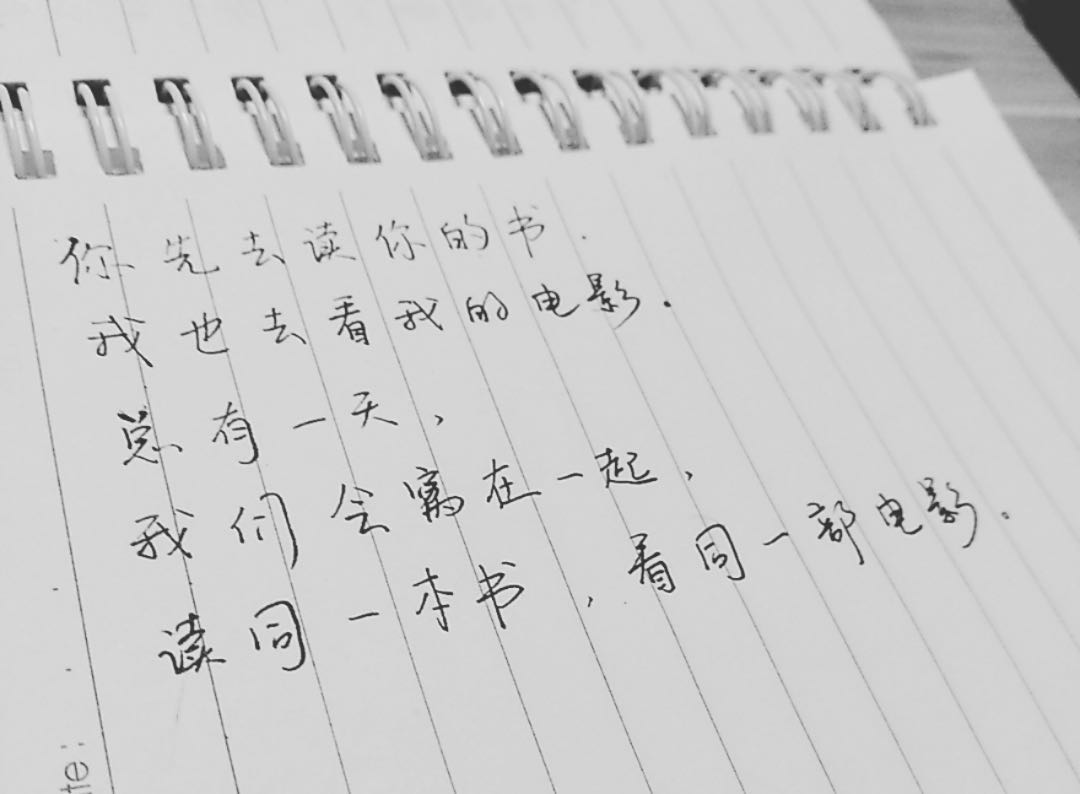 你先去读你的书.
我也去看我的电影.
总有一天,
我们会窝在一起,
读同一本书,看同一部电影.
te: